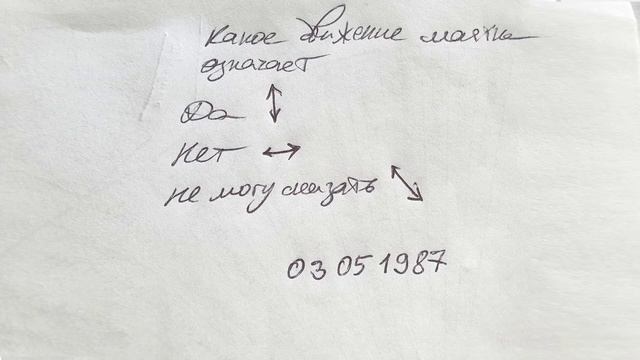 Какое движение маятника
означает
Да ↕
Нет ↔
не могу сказать ⤡
03 05 1987